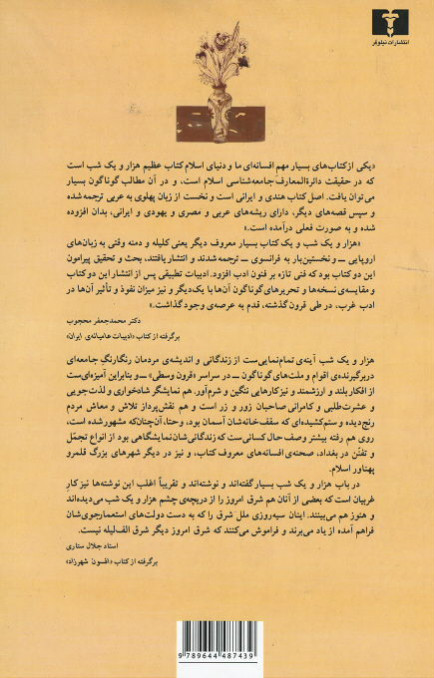 انتشارات نیلوفر
«یکی از کتاب‌های بسیار مهم افسانه‌ای ما و دنیای اسلام کتاب عظیم هزار و یک شب است
که در حقیقت دائرةالمعارف جامعه‌شناسی اسلام است، و در آن مطالب گوناگون بسیار
می‌توان یافت. اصل کتاب هندی و ایرانی است و نخست از زبان پهلوی به عربی ترجمه شده
و سپس قصه‌های دیگر، دارای ریشه‌های عربی و مصری و یهودی و ایرانی، بدان افزوده
شده و به صورت فعلی درآمده است.»
«هزار و یک شب و یک کتاب بسیار معروف دیگر یعنی کلیله و دمنه وقتی به زبان‌های
اروپایی ــ و نخستین‌بار به فرانسوی ــ ترجمه شدند و انتشار یافتند، بحث و تحقیق پیرامون
این دو کتاب بود که فنی تازه بر فنون ادب افزود. ادبیات تطبیقی پس از انتشار این دو کتاب
و مقایسه‌ی نسخه‌ها و تحریرهای گوناگون آن‌ها با یک‌دیگر و نیز میزان نفوذ و تأثیر آن‌ها در
ادب غرب، در طی قرون گذشته، قدم به عرصه‌ی وجود گذاشت.»
دکتر محمدجعفر محجوب
برگرفته از کتاب «ادبیات عامیانه‌ی ایران»
هزار و یک شب آینه‌ی تمام‌نمایی‌ست از زندگانی و اندیشه‌ی مردمان رنگارنگِ جامعه‌ای
دربرگیرنده‌ی اقوام و ملت‌های گوناگون ــ در سراسر «قرون وسطی» ــ و بنابراین آمیزه‌ای‌ست
از افکار بلند و ارزشمند و نیز کارهایی ننگین و شرم‌آور. هم نمایشگر شادخواری و لذت‌جویی
و عشرت‌طلبی و کامرانی صاحبان زور و زر است و هم نقش‌پرداز تلاش و معاش مردم
رنج‌دیده و ستم‌کشیده‌ای که سقف خانه‌شان آسمان بود. وحتا، آن‌چنان‌که مشهور شده است،
روی هم رفته بیشتر وصف حال کسانی‌ست که زندگانی‌شان نمایشگاهی بود از انواع تجمّل
و تفنّن در بغداد، صحنه‌ی افسانه‌های معروف کتاب، و نیز در دیگر شهرهای بزرگ قلمرو
پهناور اسلام.
در باب هزار و یک شب بسیار گفته‌اند و نوشته‌اند و تقریباً اغلب این نوشته‌ها نیز کارِ
غربیان است که بعضی از آنان هم شرق امروز را از دریچه‌ی چشم هزار و یک شب می‌دیده‌اند
و هنوز هم می‌بینند. اینان سیه‌روزی ملل شرق را که به دست دولت‌های استعمارجوی‌شان
فراهم آمده از یاد می‌برند و فراموش می‌کنند که شرق امروز دیگر شرق الف‌لیله نیست.
استاد جلال ستاری
برگرفته از کتاب «افسون شهرزاد»
9 789644 487439